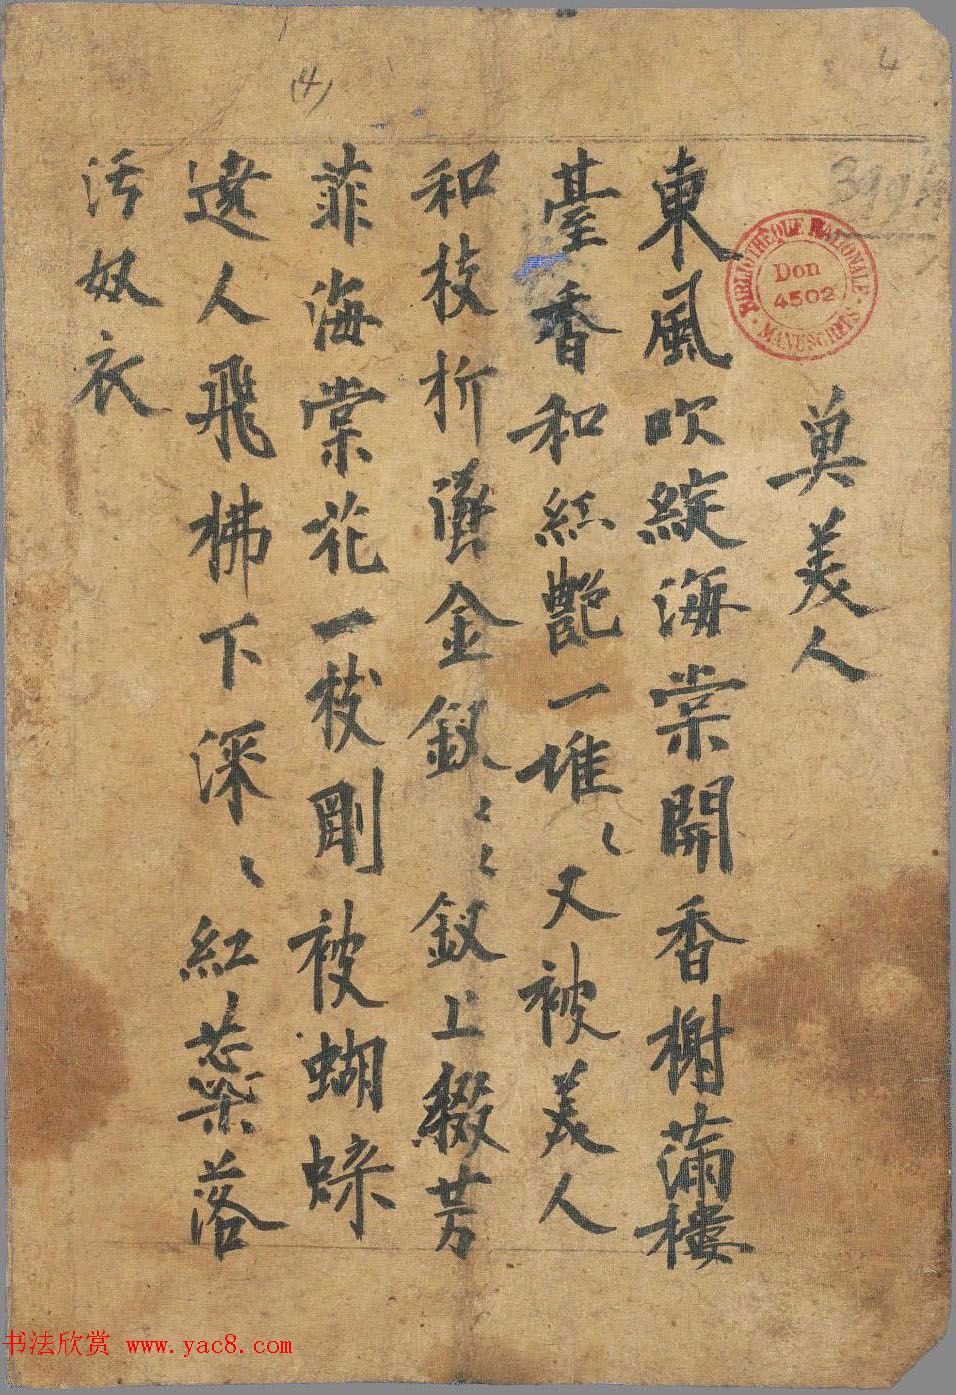 奠美人
東風吹綻海棠開香榭滿樓
臺香和紅艷一堆〻又被美人
和枝折墜金釵〻〻釵上綴芳
菲海棠花一枝剛被蝴蝶
遶人飛拂下深〻紅蕊落
污奴衣
(4)
4
BIBLIOTHÈQUE NATIONALE
MANUSCRITS
Don
4502
书法欣赏 www.yac8.com